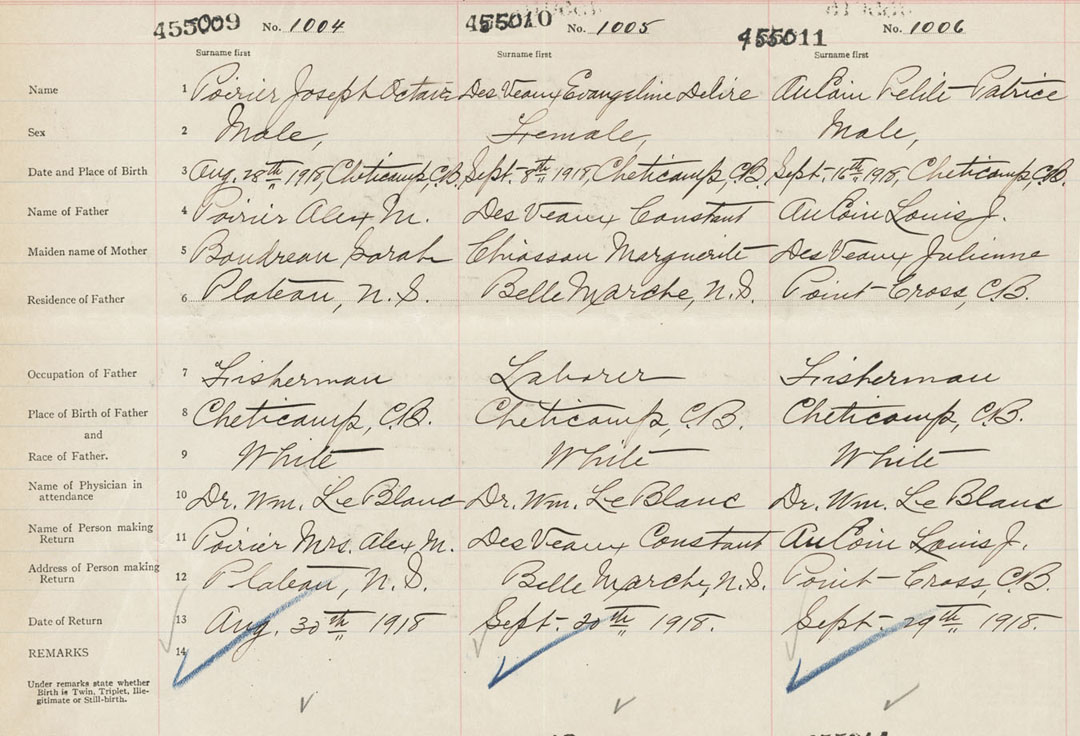 455009 No. 1004 455010 No. 1005 455011 No. 1006
Surname first Surname first Surname first
Name 1 Poirier Joseph Octave Des Veaux Evangeline Delire AuCoin Petit-Patrice
Sex 2 Male, Female, Male,
Date and Place of Birth 3 Aug. 28th 1918, Cheticamp, C.B. Sept. 8th 1918, Cheticamp, C.B. Sept. 16th 1918, Cheticamp, C.B.
Name of Father 4 Poirier Alex M. Des Veaux Constant AuCoin Louis J.
Maiden name of Mother 5 Boudreau Sarah Chiasson Marguerite Des Veaux Julienne
Residence of Father 6 Plateau, N.S. Belle Marche, N.S. Point-Cross, C.B.
Occupation of Father 7 Fisherman Laborer Fisherman
Place of Birth of Father 8 Cheticamp, C.B. Cheticamp, C.B. Cheticamp, C.B.
and
Race of Father. 9 White White White
Name of Physician in attendance 10 Dr. Wm. Le Blanc Dr. Wm. Le Blanc Dr. Wm. Le Blanc
Name of Person making Return 11 Poirier Mrs. Alex M. Des Veaux Constant AuCoin Louis J.
Address of Person making Return 12 Plateau, N.S. Belle Marche, N.S. Point-Cross, C.B.
Date of Return 13 Aug. 30th 1918 Sept. 20th 1918. Sept. 29th 1918.
REMARKS 14
Under remarks state whether
Birth is Twin, Triplet, Ille-
gitimate or Still-birth.